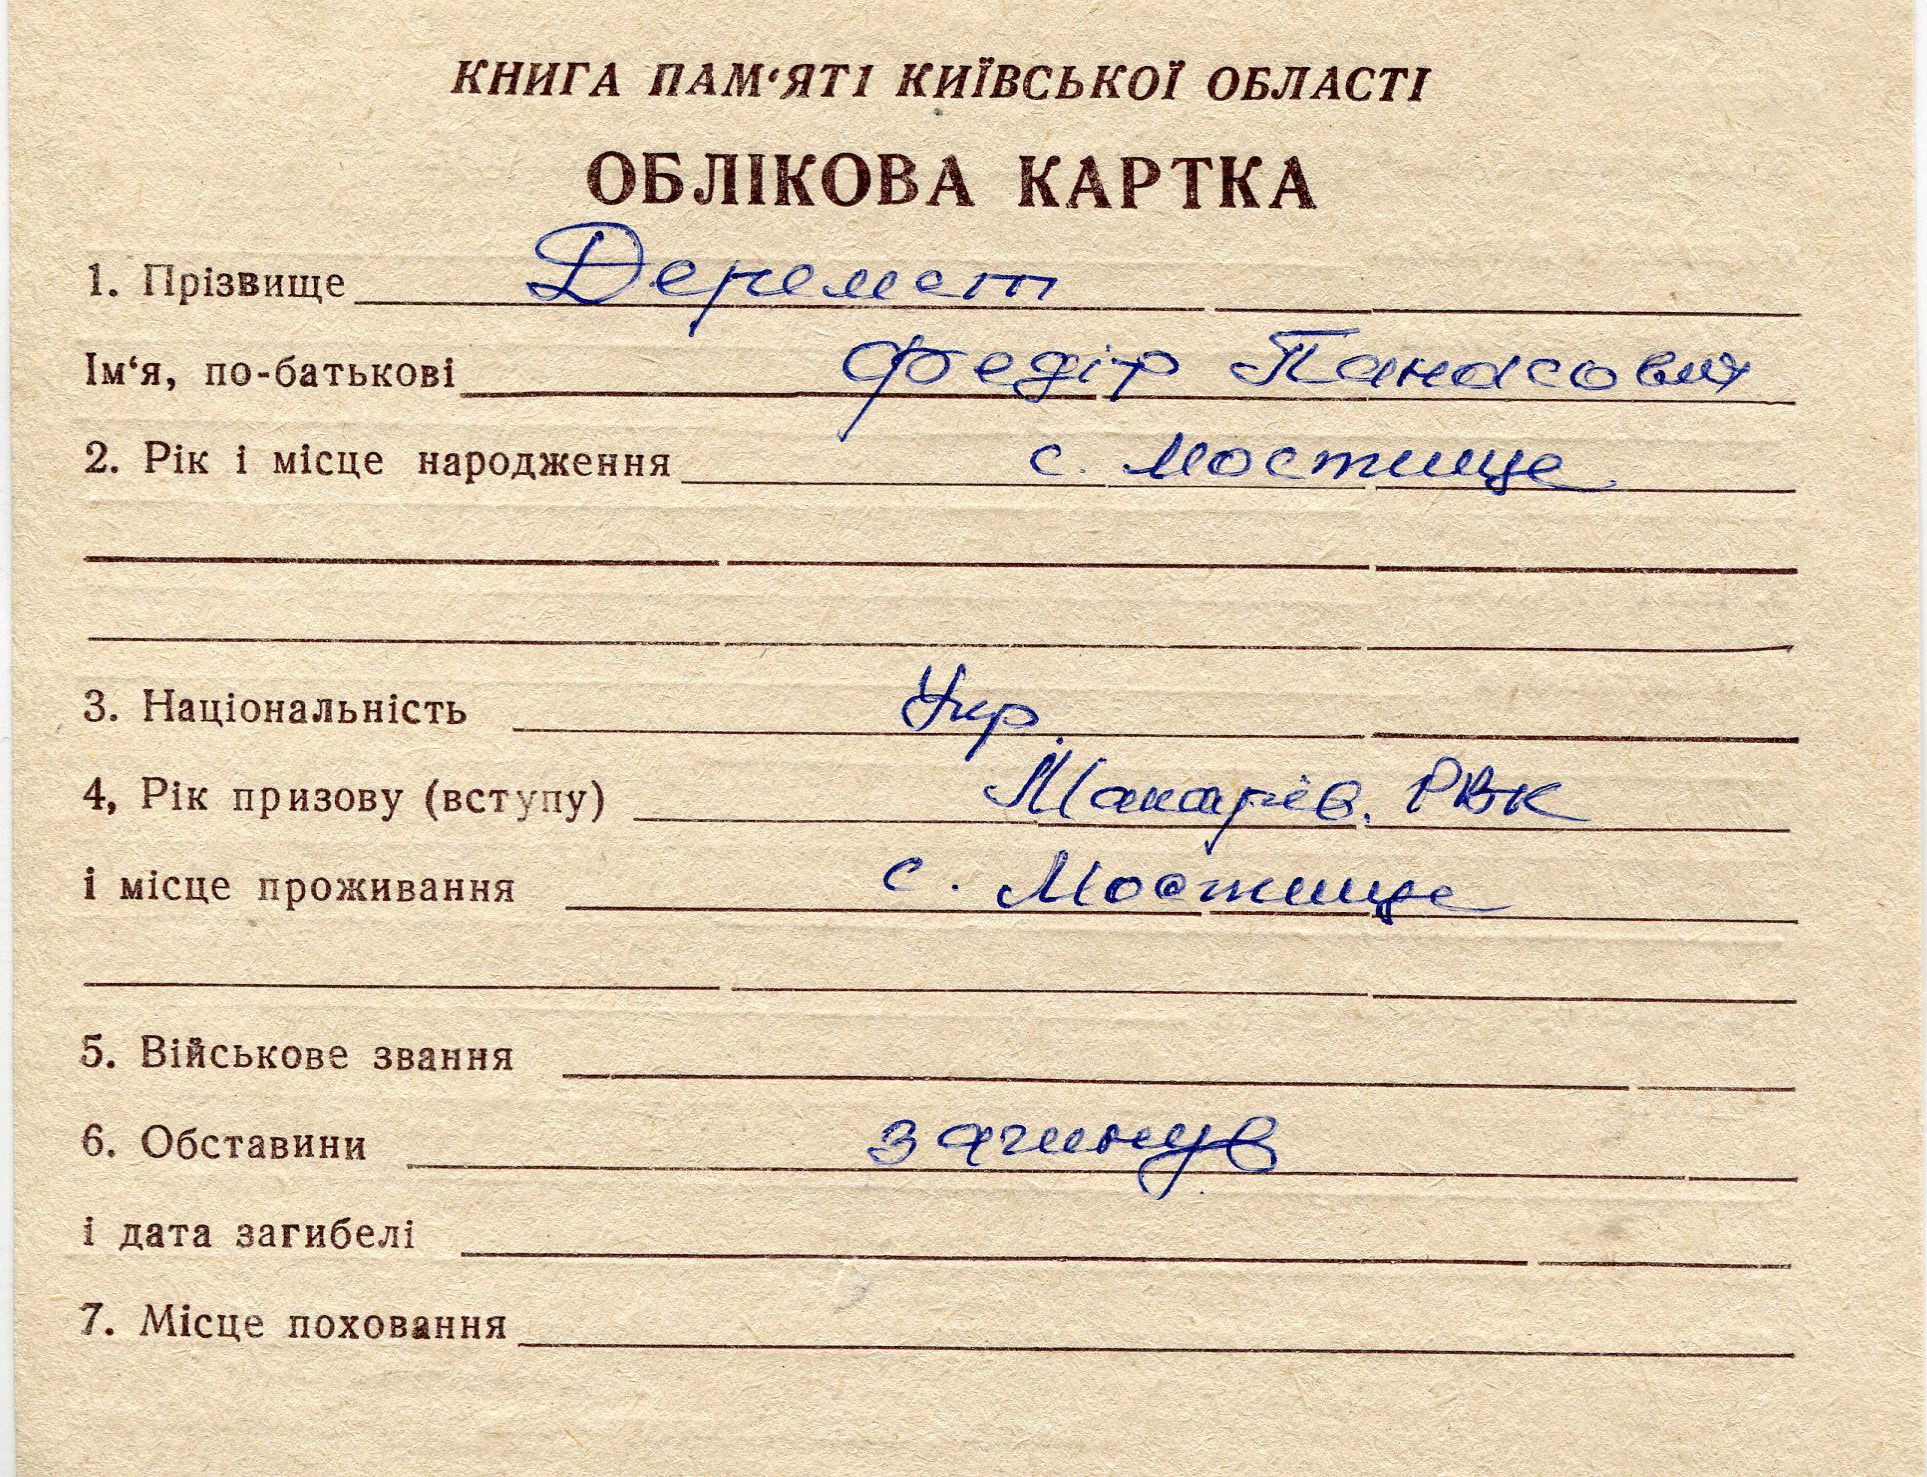 КНИГА ПАМ‘ЯТІ КИЇВСЬКОЇ ОБЛАСТІ
ОБЛІКОВА КАРТКА
1. Прізвище Деремет
Ім‘я, по-батькові Федір Панасович
2. Рік і місце народження с. Мостище
3. Національність Укр.
4, Рік призову (вступу) Макарів. РВК
і місце проживання с. Мостище
5. Військове звання
6. Обставини загинув
і дата загибелі
7. Місце поховання